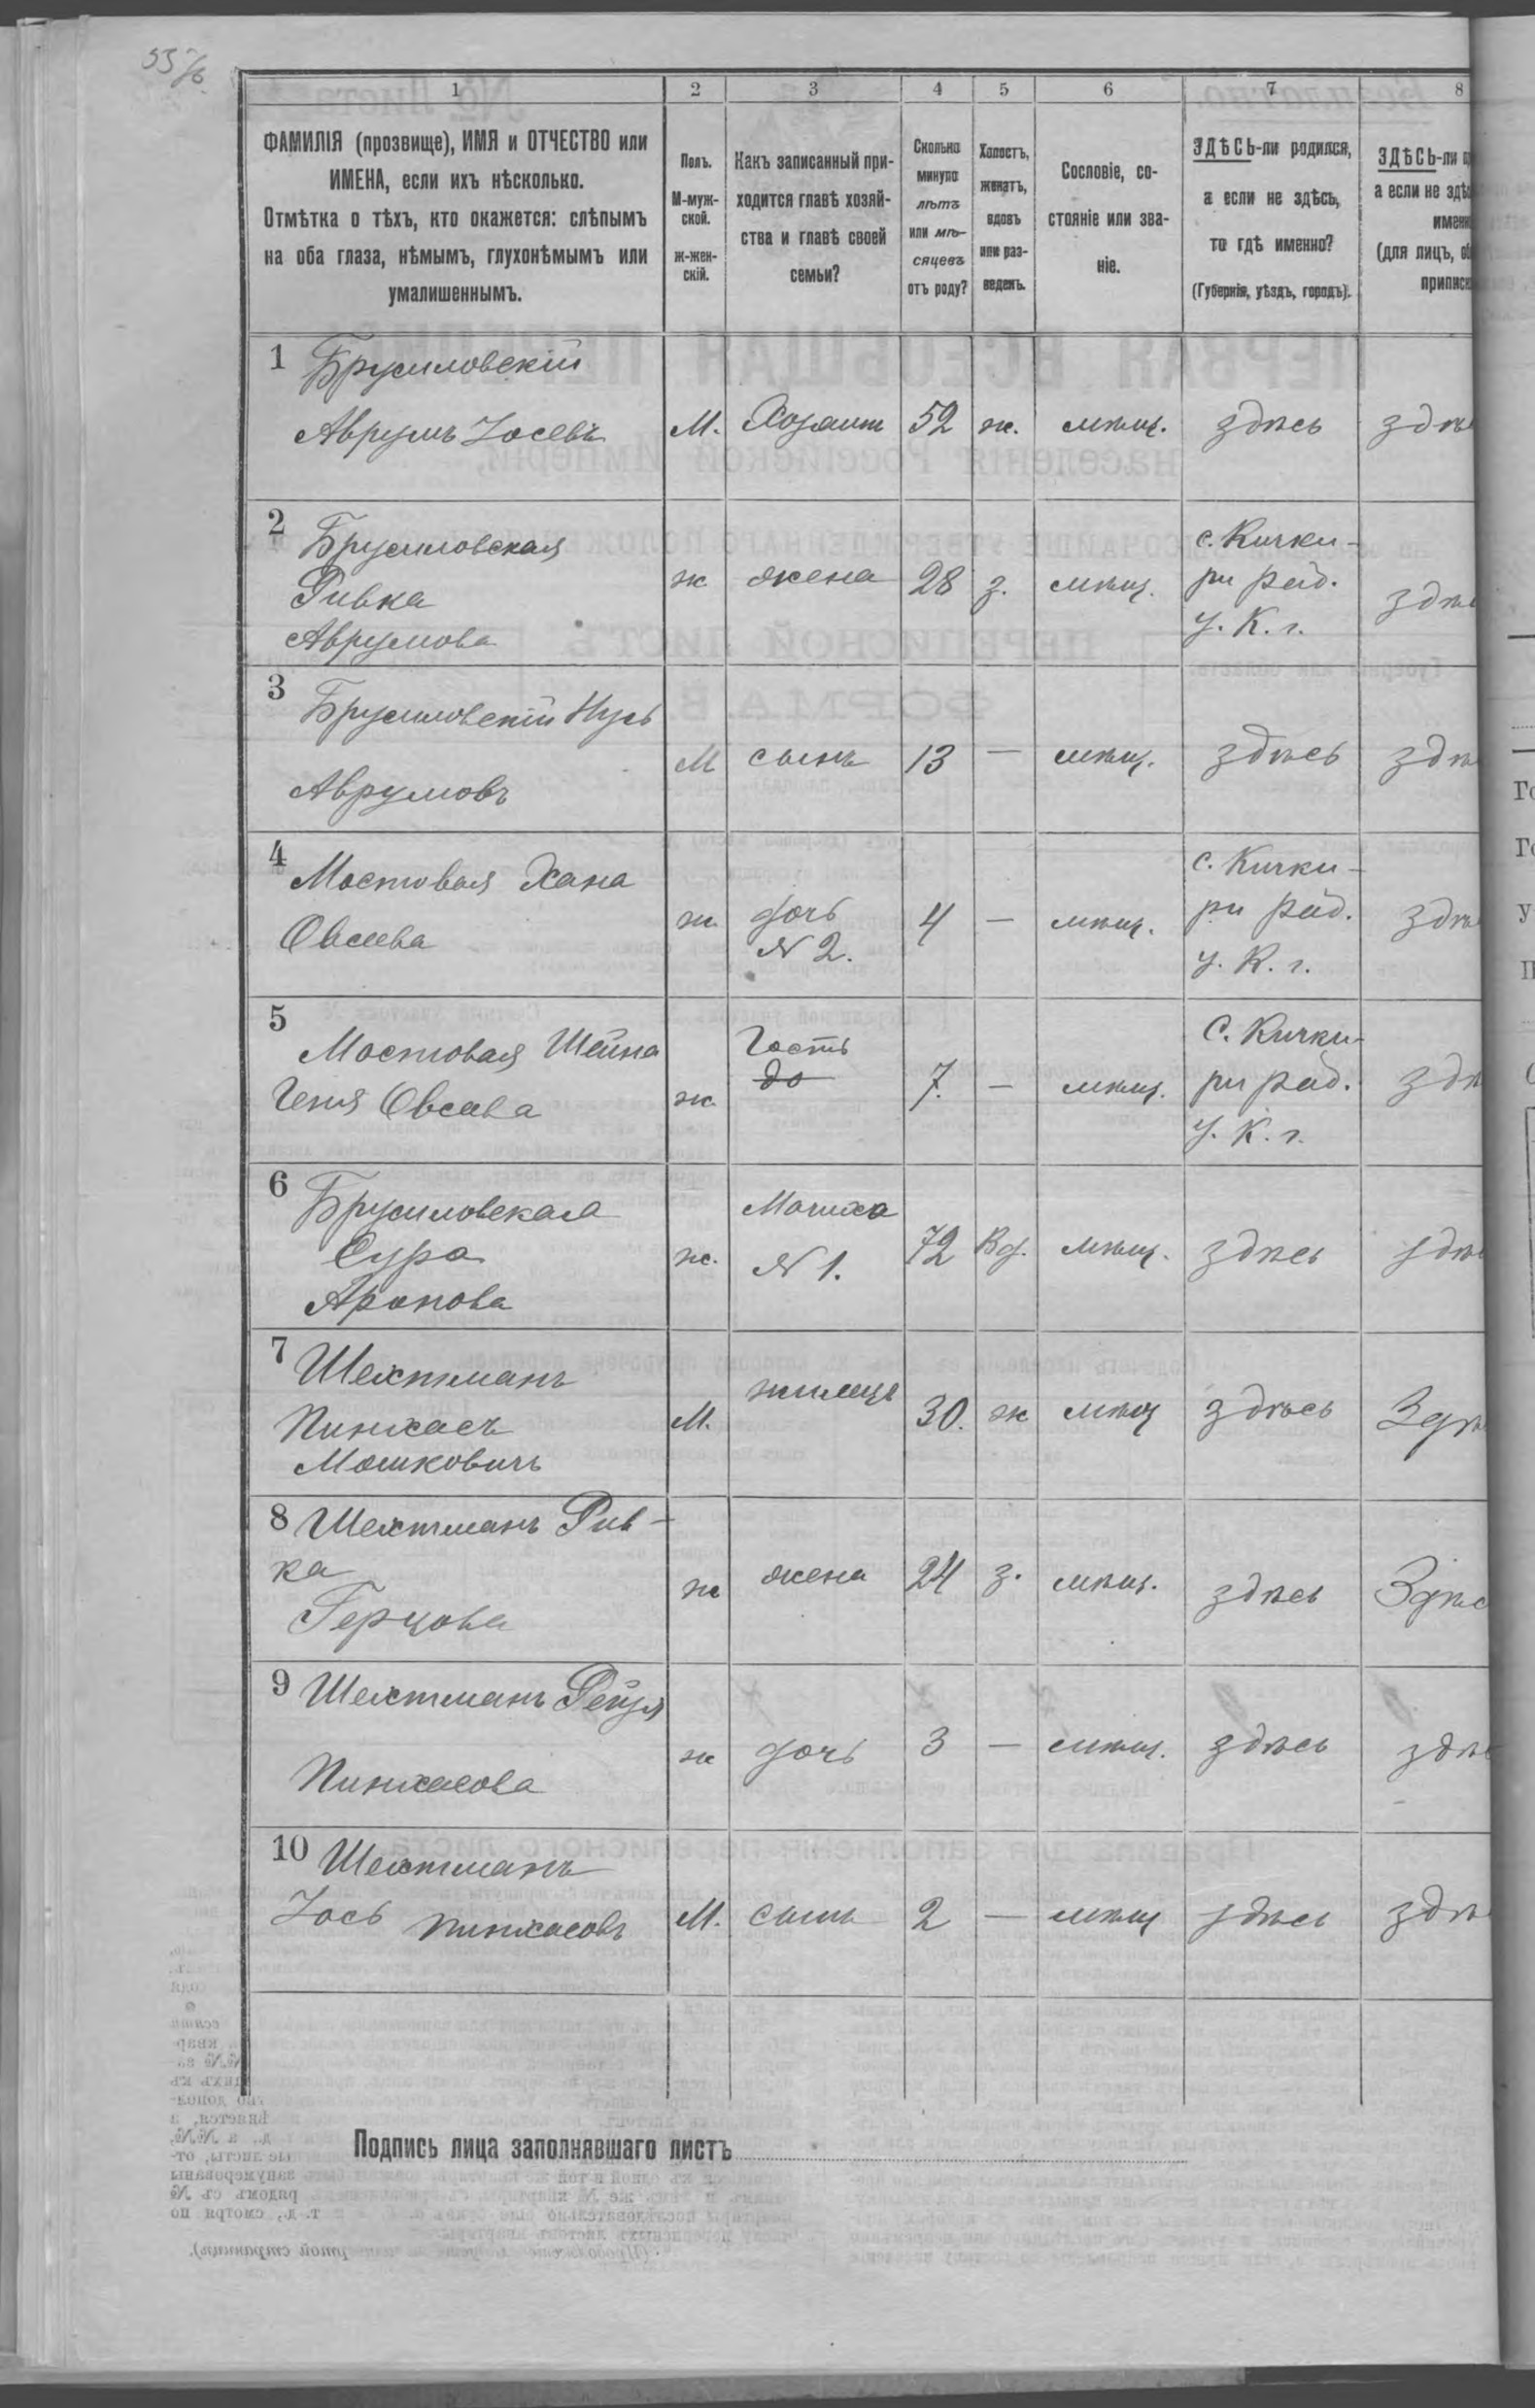 55/б
1 2 3 4 5 6 7 8
ФАМИЛІЯ (прозвище), ИМЯ и ОТЧЕСТВО или
ИМЕНА, если ихъ нѣсколько.
Отмѣтка о тѣхъ, кто окажется: слѣпымъ
на оба глаза, нѣмымъ, глухонѣмымъ или
умалишеннымъ.
Полъ.
М-муж-
ской.
ж-жен-
скій.
Какъ записанный при-
ходится главѣ хозяй-
ства и главѣ своей
семьи?
Сколько
минуло
лѣтъ
или мѣ-
сяцевъ
отъ роду?
Холостъ,
женатъ,
вдовъ
или раз-
веденъ.
Сословіе, со-
стояніе или зва-
ніе.
ЗДѢСЬ-ли родился,
а если не здѣсь,
то гдѣ именно?
(Губернія, уѣздъ, городъ).
ЗДѢСЬ-ли
а если не здѣ
именн
(для лицъ, об
приписк
1 Брусиловскій
Аврумъ Іосевъ М. Хозяинъ 52 ж. мѣщ. здѣсь здѣ
2 Брусиловская
Ривка
Аврумова
ж жена 28 з. мѣщ.
с. Кички-
ри Рад.
у. К. г.
здѣ
3 Брусиловскій Нусь
Аврумовъ
М сынъ 13 — мѣщ. здѣсь здѣ
4 Мостовая Хана
Овсеева
ж дочь
N 2.
4 — мѣщ.
с. Кички-
ри Рад.
у. К. г.
здѣ
5 Мостовая Шейна
Геня Овсеева
ж Гость
до
7. — мѣщ.
С. Кички-
ри Рад.
у. К. г.
здѣ
6 Брусиловская
Сура
Аронова
ж. Мачиха
N 1.
72 Вд. мѣщ. здѣсь здѣ
7 Шехтманъ
Пинхасъ
Мошковичъ
М. жилецъ 30. ж мѣщ здѣсь Здѣ
8 Шехтманъ Рив-
ка
Герцова
ж жена 24 з. мѣщ. здѣсь Здѣс
9 Шехтманъ Рейзя
Пинхасова
ж дочь 3 — мѣщ. здѣсь здѣ
10 Шехтманъ
Іось Пинхасовъ М. сынъ 2 — мѣщ здѣсь здѣ
Подпись лица заполнявшаго листъ